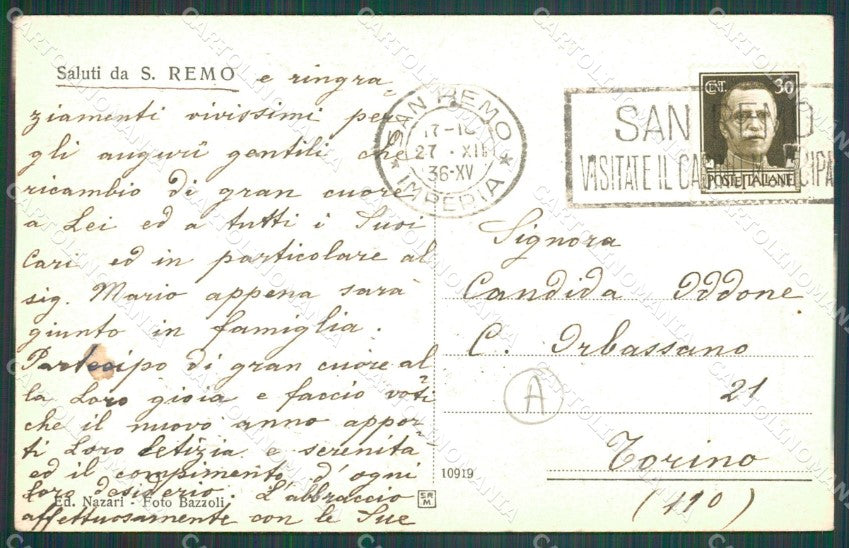 Saluti da S. REMO e ringra-
ziamenti vivissimi per
gli augurî gentili che
ricambio di gran cuore
a Lei ed a tutti i Suoi
Cari ed in particolare al
sig. Mario appena sarà
giunto in famiglia.
Partecipo di gran cuore al
la Loro gioia e faccio voti
che il nuovo anno appor-
ti Loro letizia e serenità
ed il compimento d'ogni
Loro desiderio. L'abbraccio
affettuosamente con le Sue
Ed. Nazari - Foto Bazzoli
SAN REMO
17-18
27 · XII
36-XV
IMPERIA
SAN REMO
VISITATE IL
CENT. 30
POSTE ITALIANE
Signora
Candida Oddone
C. Orbassano
21
Torino
(110)
A
10919
SR
M.
CARTOLINOMANIA